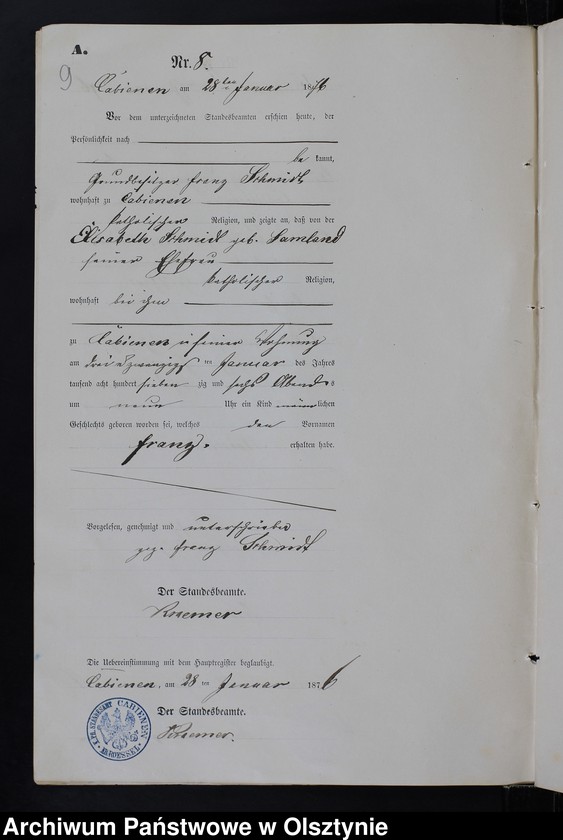 A.
9
Nr. 8.
Cabienen am 28ten Januar 1876
Vor dem unterzeichneten Standesbeamten erschien heute, der
Persönlichkeit nach
be kannt,
Grundbesitzer Franz Schmidt
wohnhaft zu Cabienen
katholischer Religion, und zeigte an, daß von der
Elisabeth Schmidt geb. Samland
seiner Ehefrau
katholischer Religion,
wohnhaft bei ihm
zu Cabienen in seiner Wohnung
am drei u zwanzigs ten Januar des Jahres
tausend acht hundert sieben zig und sechs Abends
um neun Uhr ein Kind männlichen
Geschlechts geboren worden sei, welches den Vornamen
Franz, erhalten habe.
Vorgelesen, genehmigt und unterschrieben
gez. Franz Schmidt
Der Standesbeamte.
Kraemer
Die Uebereinstimmung mit dem Hauptregister beglaubigt.
Cabienen, am 28 ten Januar 1876
Der Standesbeamte.
Kraemer.
K. PR. STANDESAMT CABIENEN
KR. ROESSEL.
Archiwum Państwowe w Olsztynie